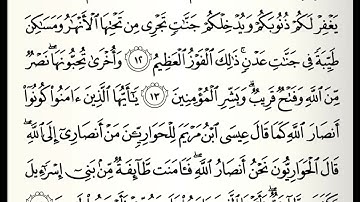 يَغْفِرْ لَكُمْ ذُنُوبَكُمْ وَيُدْخِلْكُمْ جَنَّٰتٍ تَجْرِى مِن تَحْتِهَا ٱلْأَنْهَٰرُ وَمَسَٰكِنَ
طَيِّبَةً فِى جَنَّٰتِ عَدْنٍ ۚ ذَٰلِكَ ٱلْفَوْزُ ٱلْعَظِيمُ ١٢ وَأُخْرَىٰ تُحِبُّونَهَا ۖ نَصْرٌ
مِّنَ ٱللَّهِ وَفَتْحٌ قَرِيبٌ ۗ وَبَشِّرِ ٱلْمُؤْمِنِينَ ١٣ يَٰٓأَيُّهَا ٱلَّذِينَ ءَامَنُوا۟ كُونُوٓا۟
أَنصَارَ ٱللَّهِ كَمَا قَالَ عِيسَى ٱبْنُ مَرْيَمَ لِلْحَوَارِيِّـۧنَ مَنْ أَنصَارِىٓ إِلَى ٱللَّهِ ۖ
قَالَ ٱلْحَوَارِيُّونَ نَحْنُ أَنصَارُ ٱللَّهِ ۖ فَـَٔامَنَت طَّآئِفَةٌ مِّنۢ بَنِىٓ إِسْرَٰٓءِيلَ